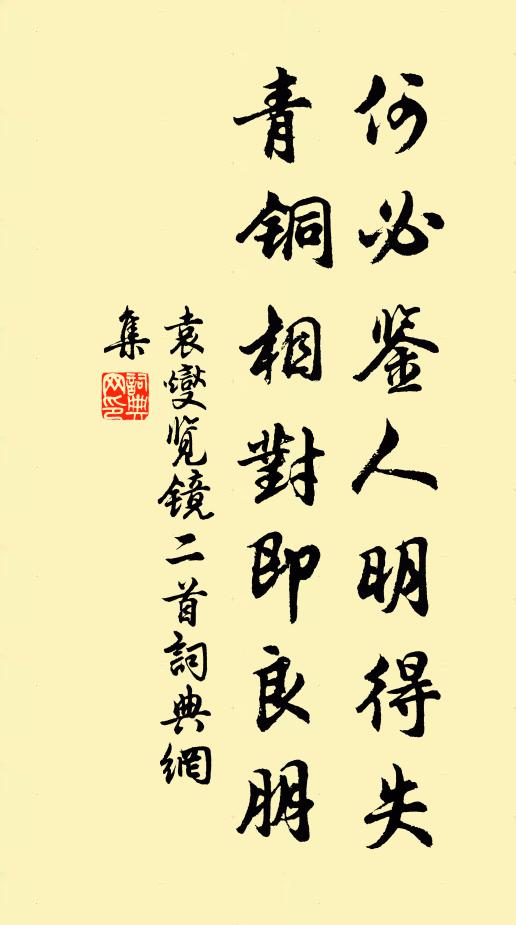 何必鉴人明得失
青铜相對即良朋
袁燮览镜二首詞典網
集
詞典网印